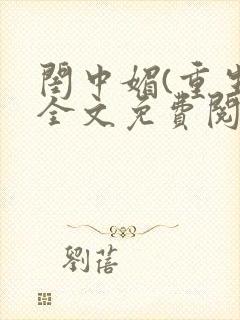 閨中媚(重生
全文免費閱
劉蓓